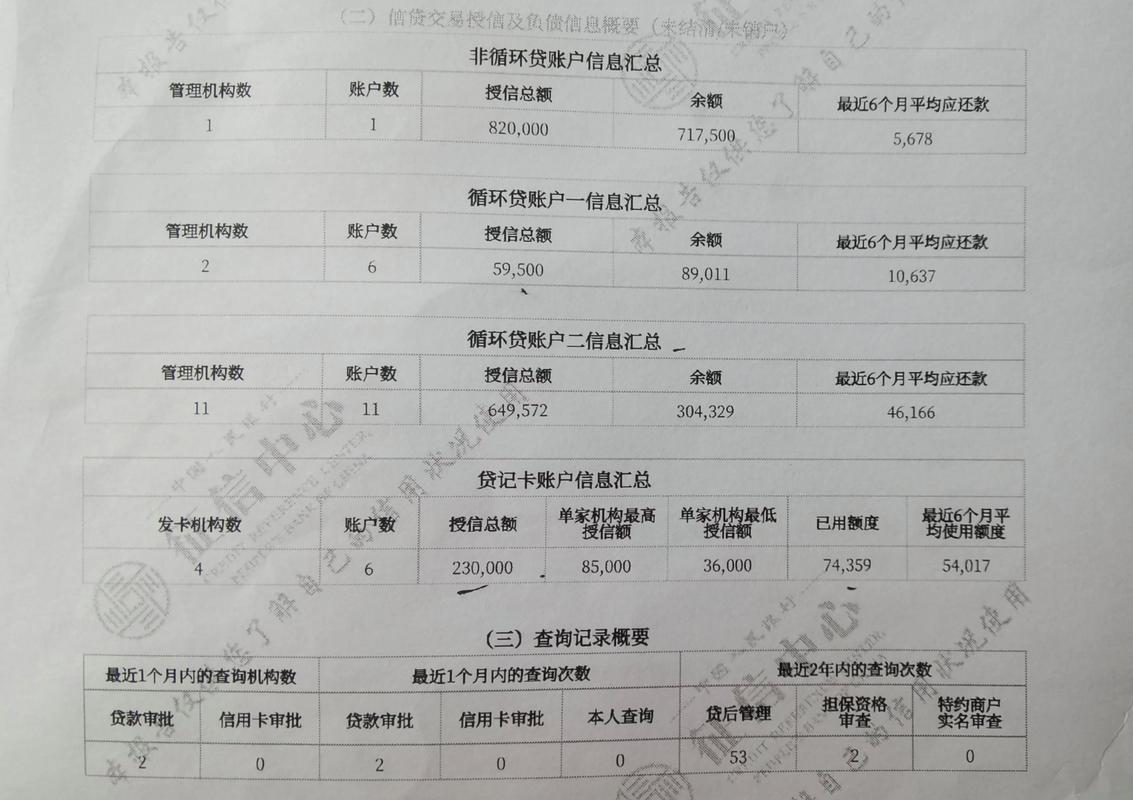 （二）信贷交易授信及负债信息概要（未结清/未销户）
非循环贷账户信息汇总
管理机构数 账户数 授信总额 余额 最近6个月平均应还款
1 1 820,000 717,500 5,678
循环贷账户一信息汇总
管理机构数 账户数 授信总额 余额 最近6个月平均应还款
2 6 59,500 89,011 10,637
循环贷账户二信息汇总
管理机构数 账户数 授信总额 余额 最近6个月平均应还款
11 11 649,572 304,329 46,166
贷记卡账户信息汇总
发卡机构数 账户数 授信总额 单家机构最高授信额 单家机构最低授信额 已用额度 最近6个月平均使用额度
4 6 230,000 85,000 36,000 74,359 54,017
（三）查询记录概要
最近1个月内的查询机构数 最近1个月内的查询次数 最近2年内的查询次数
贷款审批 信用卡审批 贷款审批 信用卡审批 本人查询 贷后管理 担保资格审查 特约商户实名审查
2 0 2 0 0 53 2 0
中国人民银行
征信中心
CREDIT REFERENCE CENTER,
PEOPLE'S BANK OF CHINA
本报告仅供您了解自己的信用状况使用